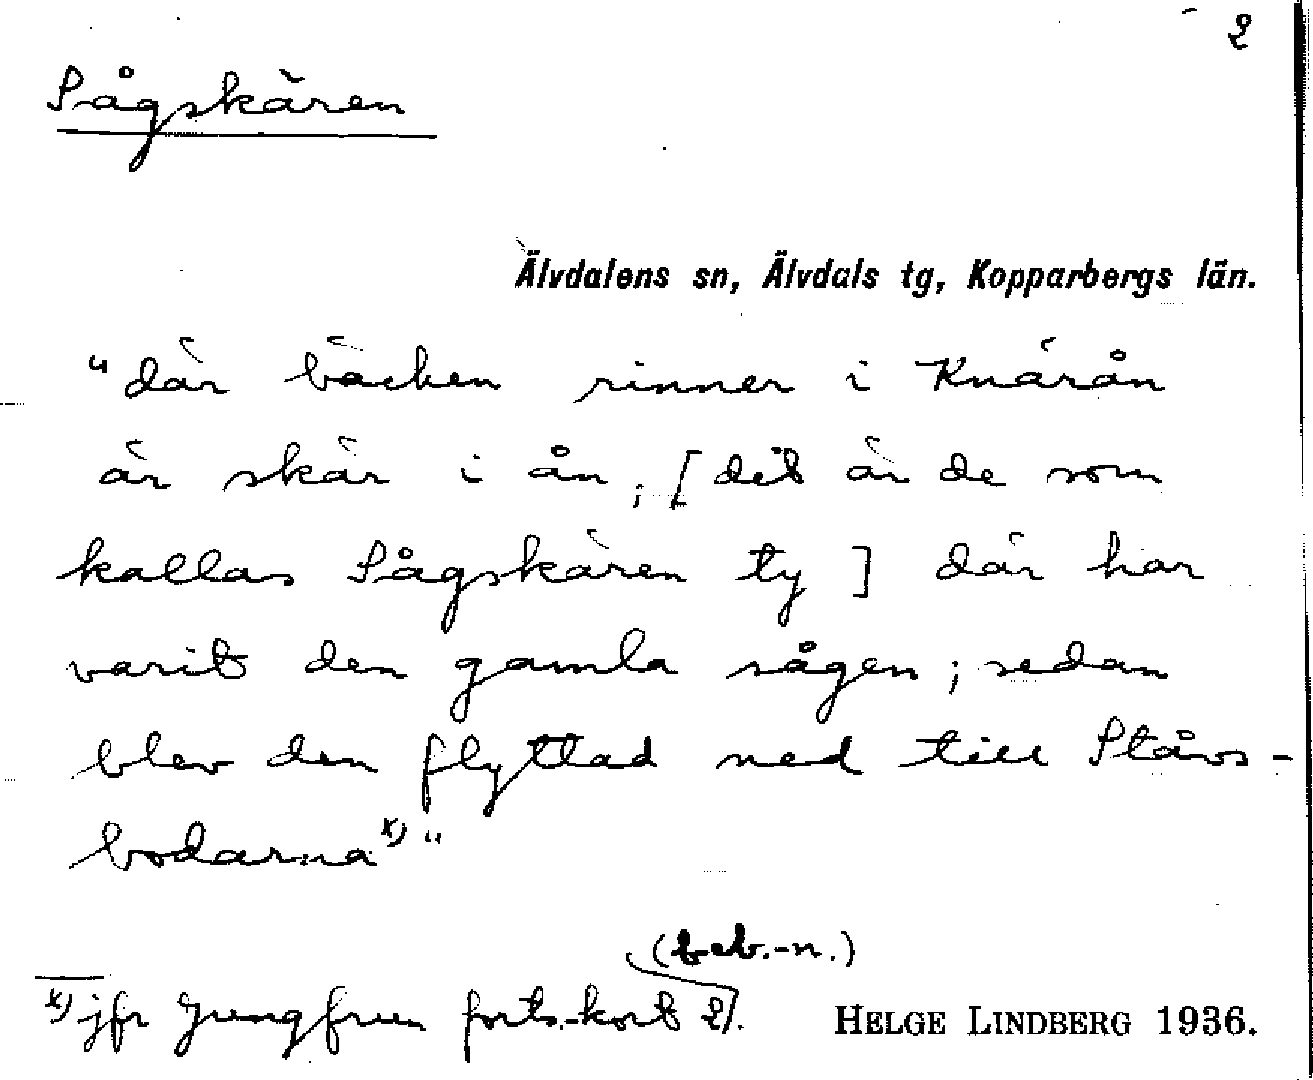 2
Sågskären
Älvdalens sn, Älvdals tg, Kopparbergs län.
"där bäcken rinner i Knärån
är skär i ån, [det är de som
kallas Sågskären ty] där har
varit den gamla sågen; sedan
blev den flyttad ned till Ståvs-
bodarna x)"
(beb.-n.)
x) jfr Jungfruen forts.-kort 2).
HELGE LINDBERG 1936.